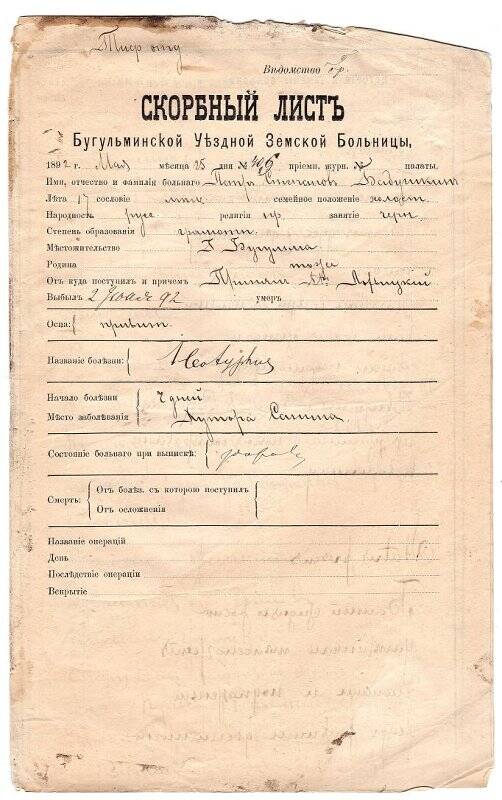 Тиф
Вѣдомство Гр.
СКОРБНЫЙ ЛИСТЪ
Бугульминской Уѣздной Земской Больницы,
1892 г. Мая мѣсяца 25 дня № пріемн. журн. № палаты.
Имя, отчество и фамилія больнаго Петръ Степановъ Бабушкинъ
Лѣта 17 сословіе мѣщ семейное положеніе холост.
Народность русс религія пр. занятіе черн.
Степень образованія грамотн.
Мѣстожительство Г Бугульма
Родина тоже
Отъ куда поступилъ и причемъ Принялъ
Выбылъ 2 92 умеръ
Оспа: привит.
Названіе болѣзни: Ileotyphus
Начало болѣзни 7 дней
Мѣсто заболѣванія Хутора
Состояніе больнаго при выпискѣ: здоровъ
Смерть: Отъ болѣз. съ которою поступилъ
Отъ осложненія
Названіе операцій
День
Послѣдствіе операціи
Вскрытіе